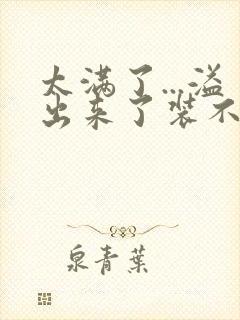 太满了…溢
出来了装不
泉青葉